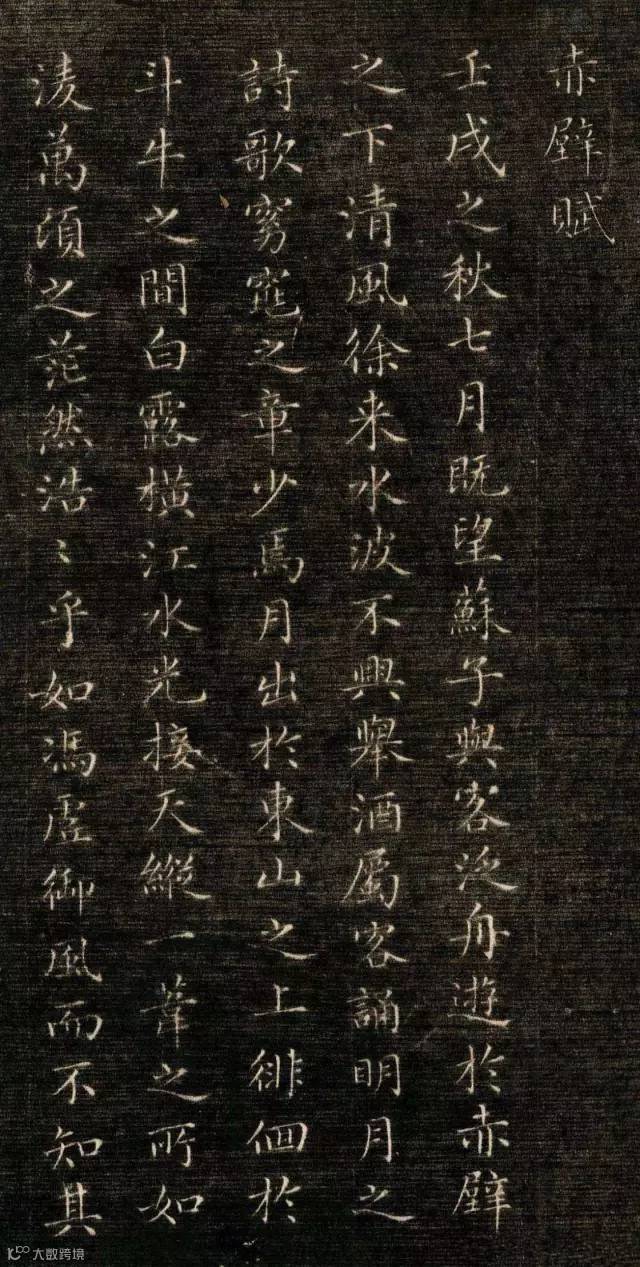 赤壁賦
壬戌之秋七月既望蘇子與客泛舟遊於赤壁
之下清風徐来水波不興舉酒屬客誦明月之
詩歌窈窕之章少焉月出於東山之上徘徊於
斗牛之間白露橫江水光接天縱一葦之所如
凌萬頃之茫然浩〻乎如馮虛御風而不知其
大数跨境